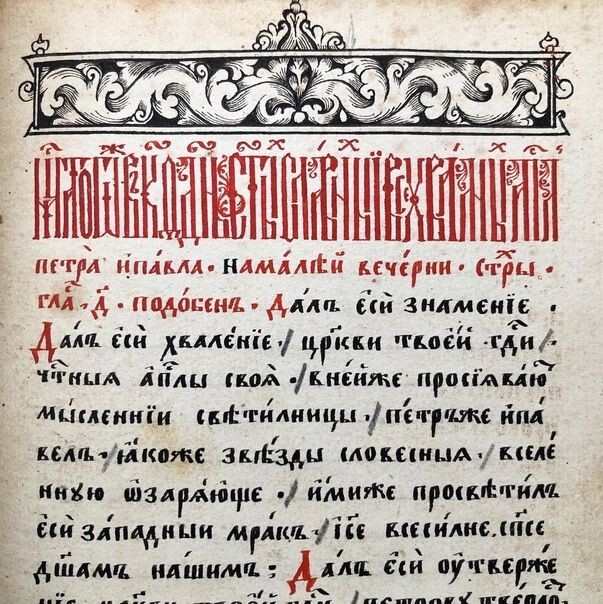 петра̀ и҆па́вла · нама́лѣй вече́рни · стⷯры ·
гла҃ · д҃ · подо́бенъ · Да́лъ є҆сѝ знаменїе ·
Да́лъ є҆сѝ хвале́нїе · / цр҃кви твое́й гдⷭ҇и / ·
чтⷭ҇ныѧ а҆пⷭ҇лы своѧ̀ · / вне́йже просїѧва́ютⷮ
мы́сленнїи свѣти́лницы · / пе́тръже и҆па́
велъ · / ꙗ҆́коже ѕвѣ́зды слове́сныѧ · / вселе́
нную ѡ҆зарѧ́юще · / и҆́миже просвѣти́лъ
є҆сѝ за́падныи мра́къ · / і҆и҃се всеси́лне . сп҃се
дꙋша́мъ на́шимъ ; Да́лъ є҆сѝ оу҆твержѐ